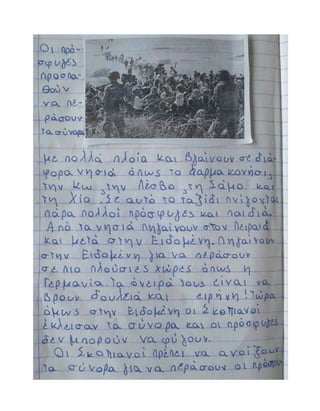 Οι πρό-
σφυγες
προσπα-
θούν
να πε-
ράσουν
τα σύνορα
με πολλά πλοία και βγαίνουν σε διά-
φορα νησιά όπως το Φαρμακονήσι,
την Κω, την Λέσβο, τη Σάμο και
τη Χίο. Σε αυτό το ταξίδι πνίγονται
πάρα πολλοί πρόσφυγες και παιδιά.
Από τα νησιά πηγαίνουν στον Πειραιά
και μετά στην Ειδομένη. Πηγαίνουν
στην Ειδομένη για να περάσουν
σε πιο πλούσιες χώρες όπως η
Γερμανία. Τα όνειρά τους είναι να
βρουν δουλειά και ειρήνη! Τώρα
όμως στην Ειδομένη οι Σκοπιανοί
έκλεισαν τα σύνορα και οι πρόσφυγες
δεν μπορούν να φύγουν.
Οι Σκοπιανοί πρέπει να ανοίξουν
τα σύνορα για να περάσουν οι πρόσφυγες